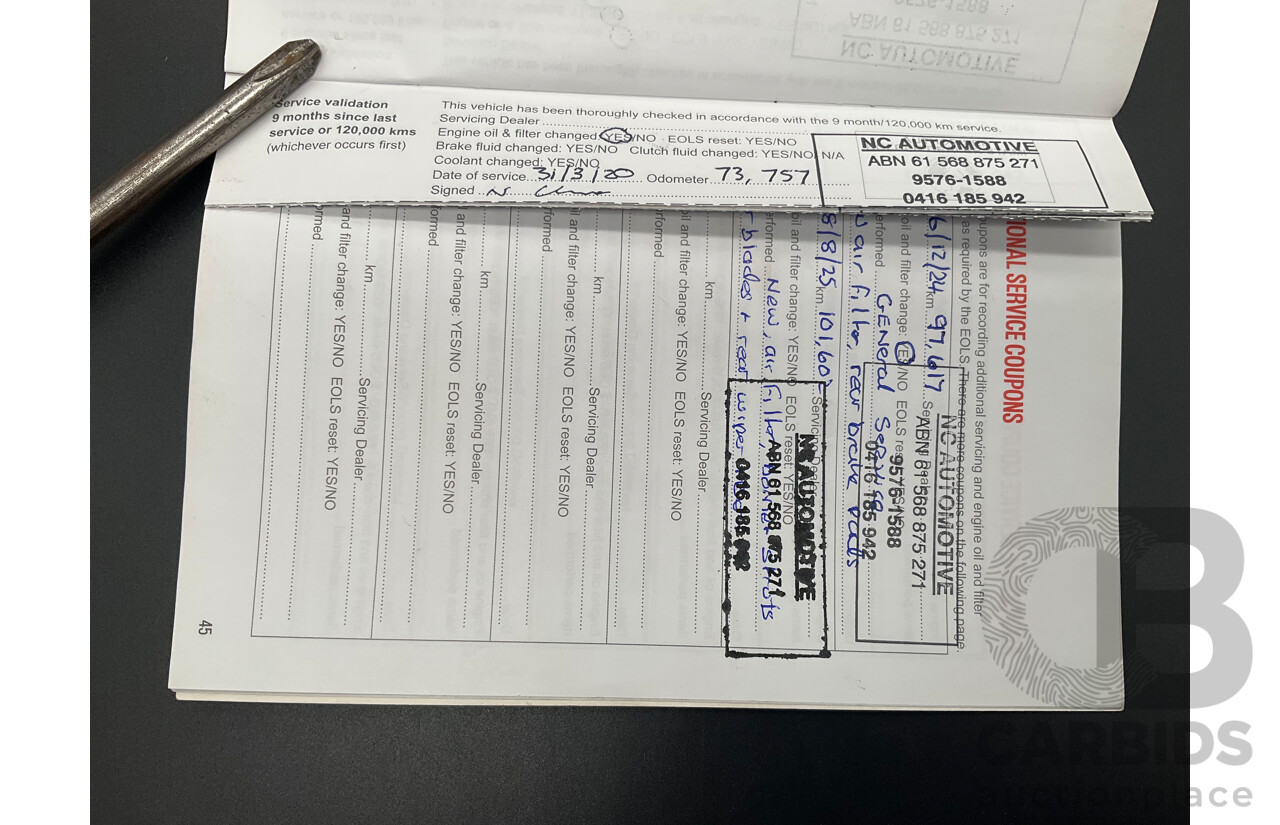 NC AUTOMOTIVE
ABN 61 568 875 271
9576-1588
Service validation
9 months since last
service or 120,000 kms
(whichever occurs first)
This vehicle has been thoroughly checked in accordance with the 9 month/120,000 km service.
Servicing Dealer
Engine oil & filter changed: YES/NO EOLS reset: YES/NO
Brake fluid changed: YES/NO Clutch fluid changed: YES/NO N/A
Coolant changed: YES/NO
Date of service 31/3/20 Odometer 73,757
Signed
NC AUTOMOTIVE
ABN 61 568 875 271
9576-1588
0416 185 942
IONAL SERVICE COUPONS
upons are for recording additional servicing and engine oil and filter
as required by the EOLS. There are more coupons on the following page.
6/12/24 km 97,617
oil and filter change: YES/NO EOLS reset
erformed General Service
air filter, rear brake pads
NC AUTOMOTIVE
ABN 61 568 875 271
9576-1588
0416 185 942
8/8/25 km 101,602 Servicing
oil and filter change: YES/NO EOLS reset: YES/NO
erformed New, air filter,
blades + rear wiper
NC AUTOMOTIVE
ABN 61 568 875 271
0416 185
km Servicing Dealer
oil and filter change: YES/NO EOLS reset: YES/NO
erformed
km Servicing Dealer
il and filter change: YES/NO EOLS reset: YES/NO
formed
km Servicing Dealer
and filter change: YES/NO EOLS reset: YES/NO
ormed
km Servicing Dealer
and filter change: YES/NO EOLS reset: YES/NO
ormed
45
CARBIDS
auctionplace